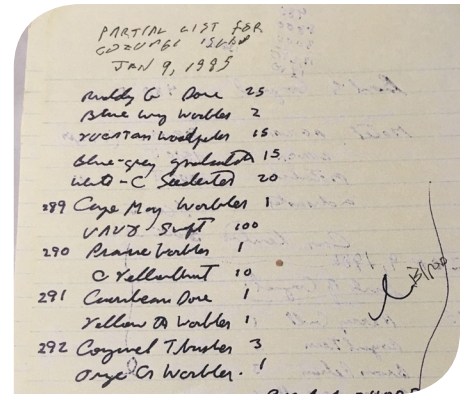 PARTIAL LIST FOR
COZUMEL ISLAND
JAN 9, 1985
Ruddy G Dove 25
Blue Wing Warbler 2
YUCATAN Woodpecker 15
Blue-grey gnatcatch 15
White-C Seedeater 20
289 Cape May Warbler 1
VAUX Swift 100
290 Prairie Warbler 1
C Yellowthroat 10
291 Caribbean Dove 1
Yellow Warbler 1
292 Cozumel Thrasher 3
Orange Cr Warbler. 1